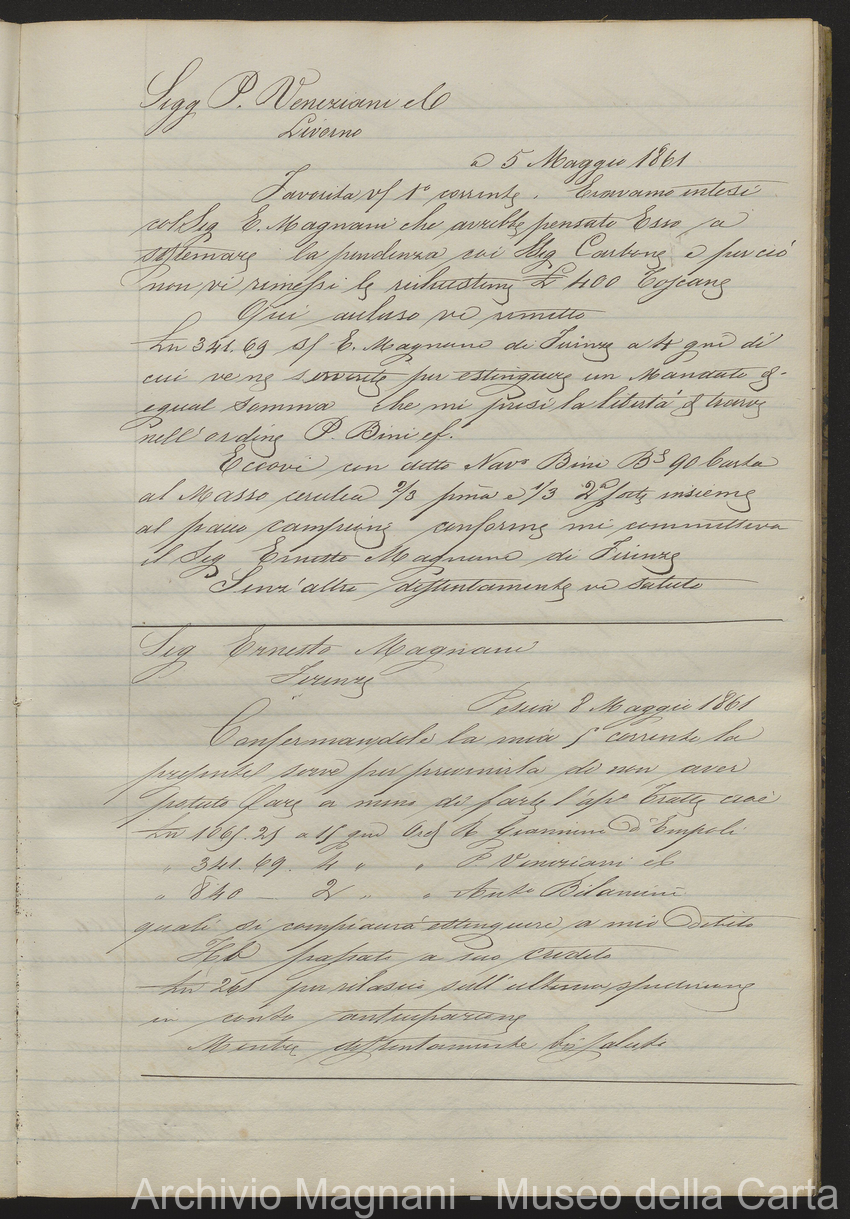 Sigg P. Veneziani e C
Livorno
a 5 Maggio 1861
Favorita vs/ 1° corrente. Eravamo intesi
col Sig E. Magnani che avrebbe pensato Esso a
sistemare la pendenza coi Sigg Carbone e perciò
non vi rimessi le richiestemi £ 400 Toscane
Qui accluso vi rimetto
Ln 341.69 S/ E. Magnani di Firenze a 4 gni di
cui ve ne servirete per estinguere un Mandato di
egual somma che mi presi la libertà di trarvi
nell'ordine P. Bini e f.
Eccovi con detto Nav° Bini Bs 90 Carta
al Masso cerulea 2/3 pma e 1/3 2a sorte insieme
al pacco campioni conforme mi commetteva
il Sig Ernesto Magnani di Firenze
Senz'altro distintamente vi saluto
Sig Ernesto Magnani
Firenze
Pescia 8 Maggio 1861
Confermandole la mia 5 corrente la
presente serve per prevenirla di non aver
potuto fare a meno di farle l'ap° Tratte cioè
Ln 1065.25 a 15 gni O/ R. Giannini d'Empoli
" 341.69. 4 " " P. Veneziani e C
" 840 — 2 " " Ant° Bilancini
quali si compiacerà estinguere a mio Debito
Ho passato a suo credito
Ln 261 per rilascio sull'ultima spedizione
in conto anticipazione
Mentre distintamente La saluto
Archivio Magnani - Museo della Carta